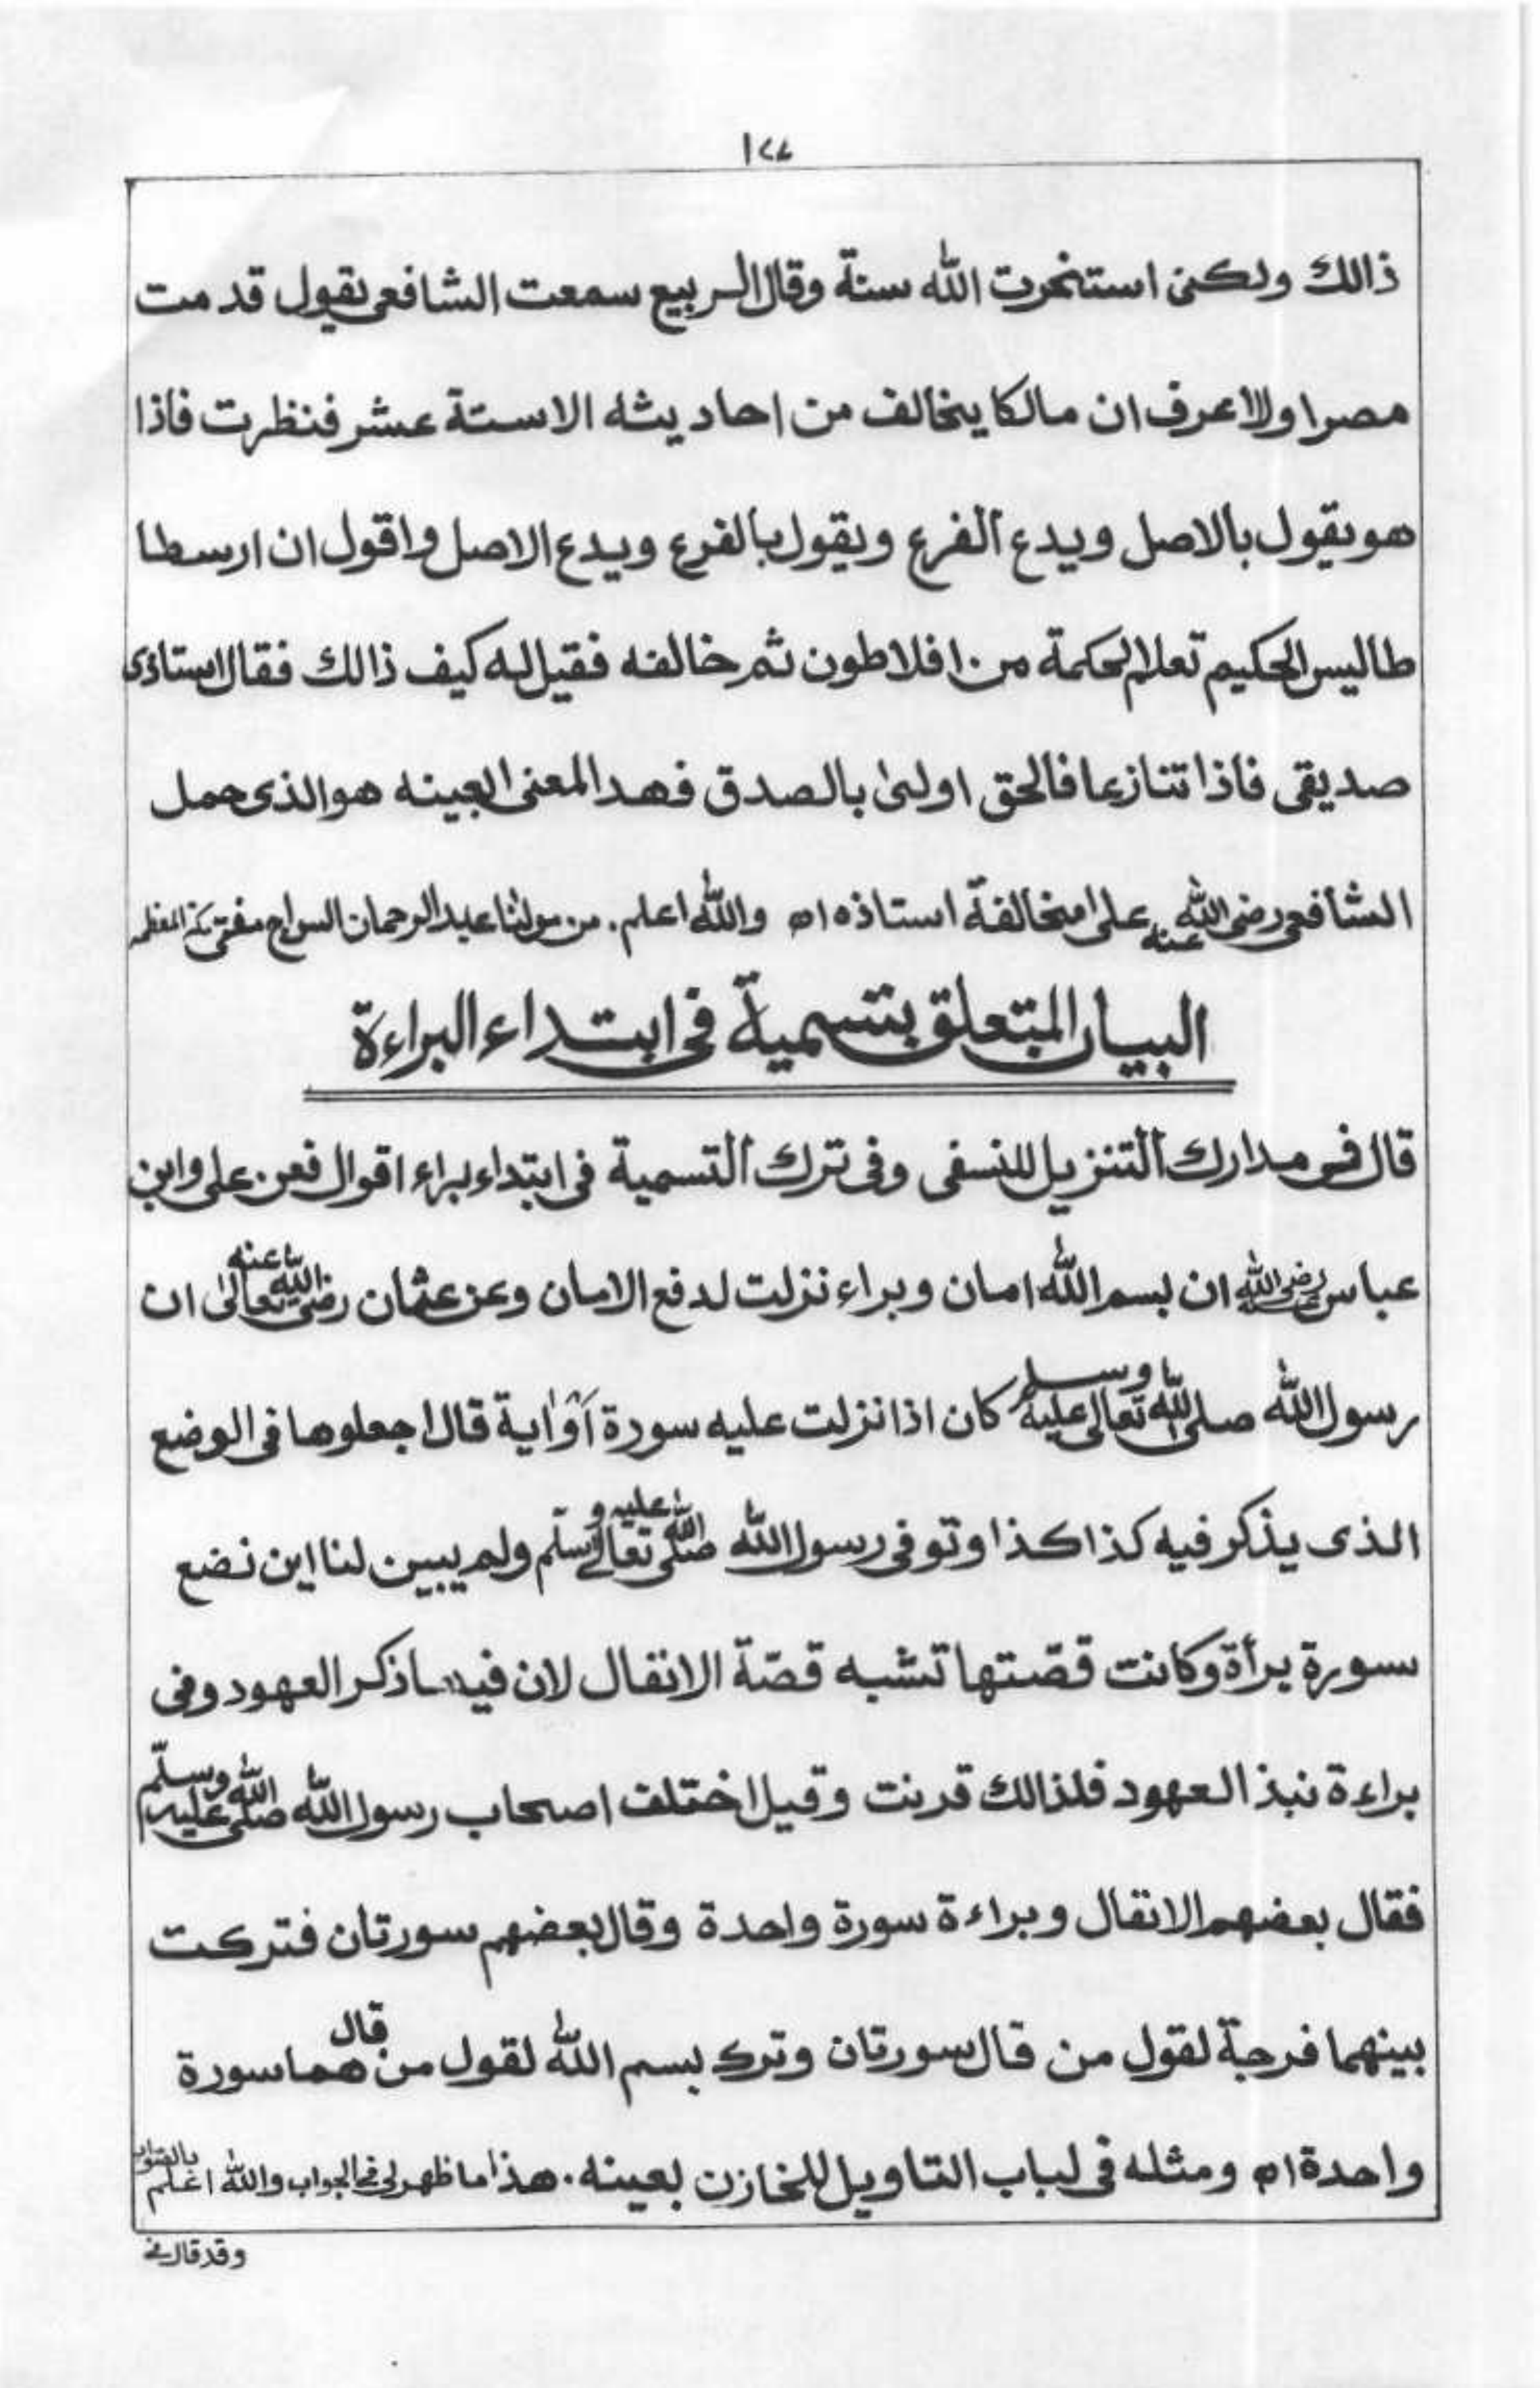 ١٧٧
ذالك ولكنى استخرت الله سنة وقال الربيع سمعت الشافعى يقول قدمت
مصرا ولا اعرف ان مالكا يخالف من احاديثه الاستة عشر فنظرت فاذا
هو يقول بالاصل ويدع الفرع ويقول بالفرع ويدع الاصل واقول ان ارسطا
طاليس الحكيم تعلم الحكمة من افلاطون ثم خالفه فقيل له كيف ذالك فقال استاذى
صديقى فاذا تنازعا فالحق اولىٰ بالصدق فهذا المعنى العينه هو الذى حمل
الشافعى رضى الله عنه على مخالفة استاذه اه والله اعلم. من مولٰنا عبد الرحمان السراج مفتى مكة المعظمه
البيان المتعلق بتسمية فى ابتداء البراءة
قال فى مدارك التنزيل للنسفى وفى ترك التسمية فى ابتداء براء اقوال فعن على وابن
عباس رضى الله عنهم ان بسم الله امان وبراء نزلت لدفع الامان وعن عثمان رضى الله تعالىٰ عنه ان
رسول الله صلى الله تعالى عليه وسلم كان اذا نزلت عليه سورة اَوْ اٰية قال اجعلوها فى الوضع
الذى يذكر فيه كذا كذا وتوفى رسول الله صلى الله تعالى عليه وسلّم ولم يبين لنا اين نضع
سورة برأة وكانت قصّتها تشبه قصّة الانفال لان فيها ذكر العهود وفى
براءة نبذ العهود فلذالك قرنت وقيل اختلف اصحاب رسول الله صلى الله عليه وسلّم
فقال بعضهم الانفال وبراءة سورة واحدة وقال بعضهم سورتان فتركت
بينهما فرجة لقول من قال سورتان وترك بسم الله لقول من قال هما سورة
واحدة اه ومثله فى لباب التاويل للخازن بعينه. هذا ما ظهر لى فى الجواب والله اعلم بالصواب
وقد قال فى